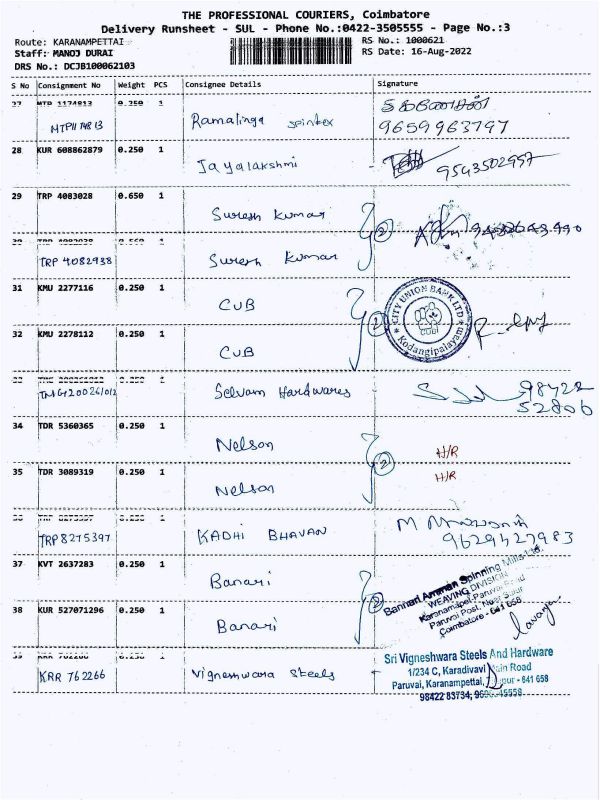 THE PROFESSIONAL COURIERS, Coimbatore
Delivery Runsheet - SUL - Phone No.:0422-3505555 - Page No.:3
Route: KARANAMPETTAI
RS No.: 1000621
Staff: MANOJ DURAI
RS Date: 16-Aug-2022
DRS No.: DCJB100062103
S No Consignment No Weight PCS Consignee Details Signature
27 MTP 1174813 0.250 1
MTP1174813 Ramalinga spintex
9659963797
28 KUR 608862879 0.250 1 Jayalakshmi 9543502997
29 TRP 4083028 0.650 1 Suresh Kumar
2
TRP 4082938 Suresh Kumar
31 KMU 2277116 0.250 1 CUB
2
CITY UNION BANK LTD
CUB
Kodangipalayam
32 KMU 2278112 0.250 1 CUB
Selvam Hardwares 98422
52806
34 TDR 5360365 0.250 1 Nelson H/R
2
35 TDR 3089319 0.250 1 Nelson H/R
TRP8275397 KADHI BHAVAN
9629427983
37 KVT 2637283 0.250 1 Banari
2
38 KUR 527071296 0.250 1 Banari
Bannari Amman Spinning Mills Ltd.
WEAVING DIVISION
Karanampet-Paruvai Road
Paruvai Post, Near Sulur
Coimbatore - 641 658
lavanya
KRR 762266 Vigneshwara Steels
Sri Vigneshwara Steels And Hardware
1/234 C, Karadivavi Main Road
Paruvai, Karanampettai, - 641 658
98422 83734,